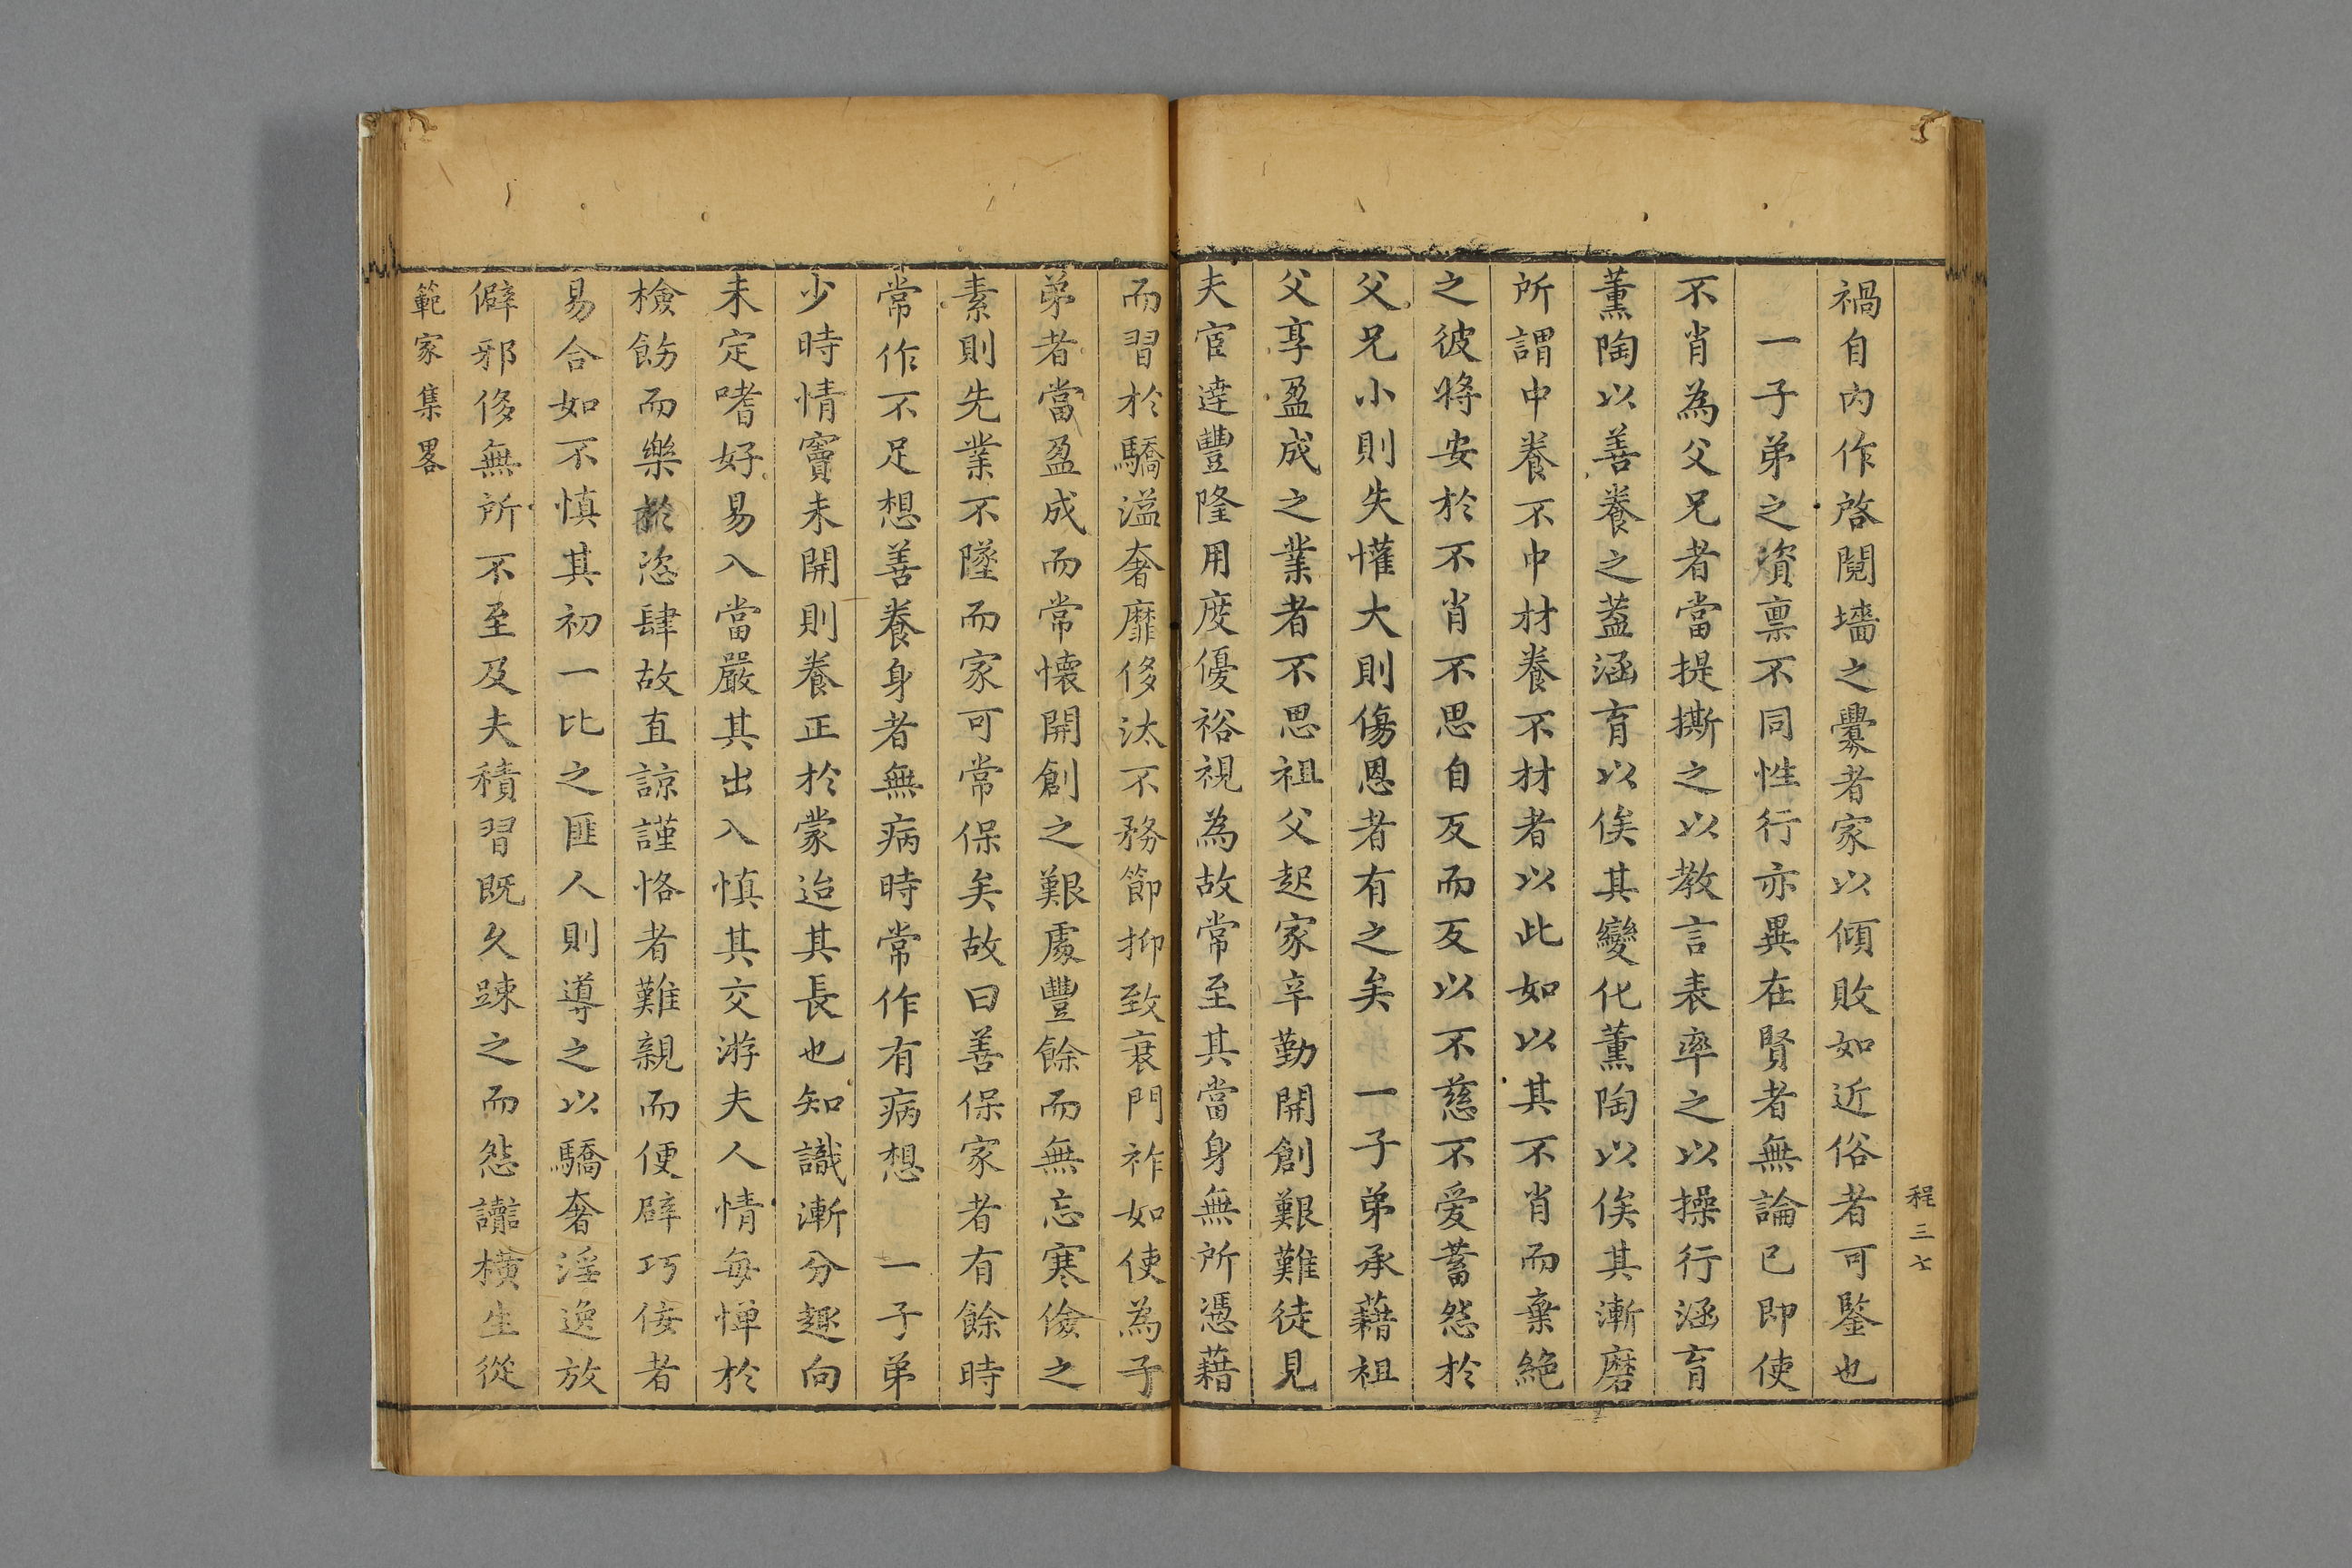 程三七
禍自內作啓鬩墻之釁者家以傾敗如近俗者可鑒也
一子弟之資禀不同性行亦異在賢者無論已即使
不肖為父兄者當提撕之以教言表率之以操行涵育
薰陶以善養之蓋涵育以俟其變化薰陶以俟其漸磨
所謂中養不中材養不材者以此如以其不肖而棄絕
之彼將安於不肖不思自反而反以不慈不爱蓄怨於
父兄小則失懽大則傷恩者有之矣 一子弟承藉祖
父享盈成之業者不思祖父起家辛勤開創艱難徒見
夫宦達豐隆用度優裕視為故常至其當身無所憑藉
而習於驕溢奢靡侈汰不務節抑致衰門祚如使為子
弟者當盈成而常懷開創之艱處豐餘而無忘寒儉之
素則先業不墜而家可常保矣故曰善保家者有餘時
常作不足想善養身者無病時常作有病想 一子弟
少時情竇未開則養正於蒙迨其長也知識漸分趣向
未定嗜好易入當嚴其出入慎其交游夫人情每憚於
檢飭而樂於恣肆故直諒謹恪者難親而便辟巧佞者
易合如不慎其初一比之匪人則導之以驕奢淫逸放
僻邪侈無所不至及夫積習既久踈之而怨讟橫生從
範家集畧